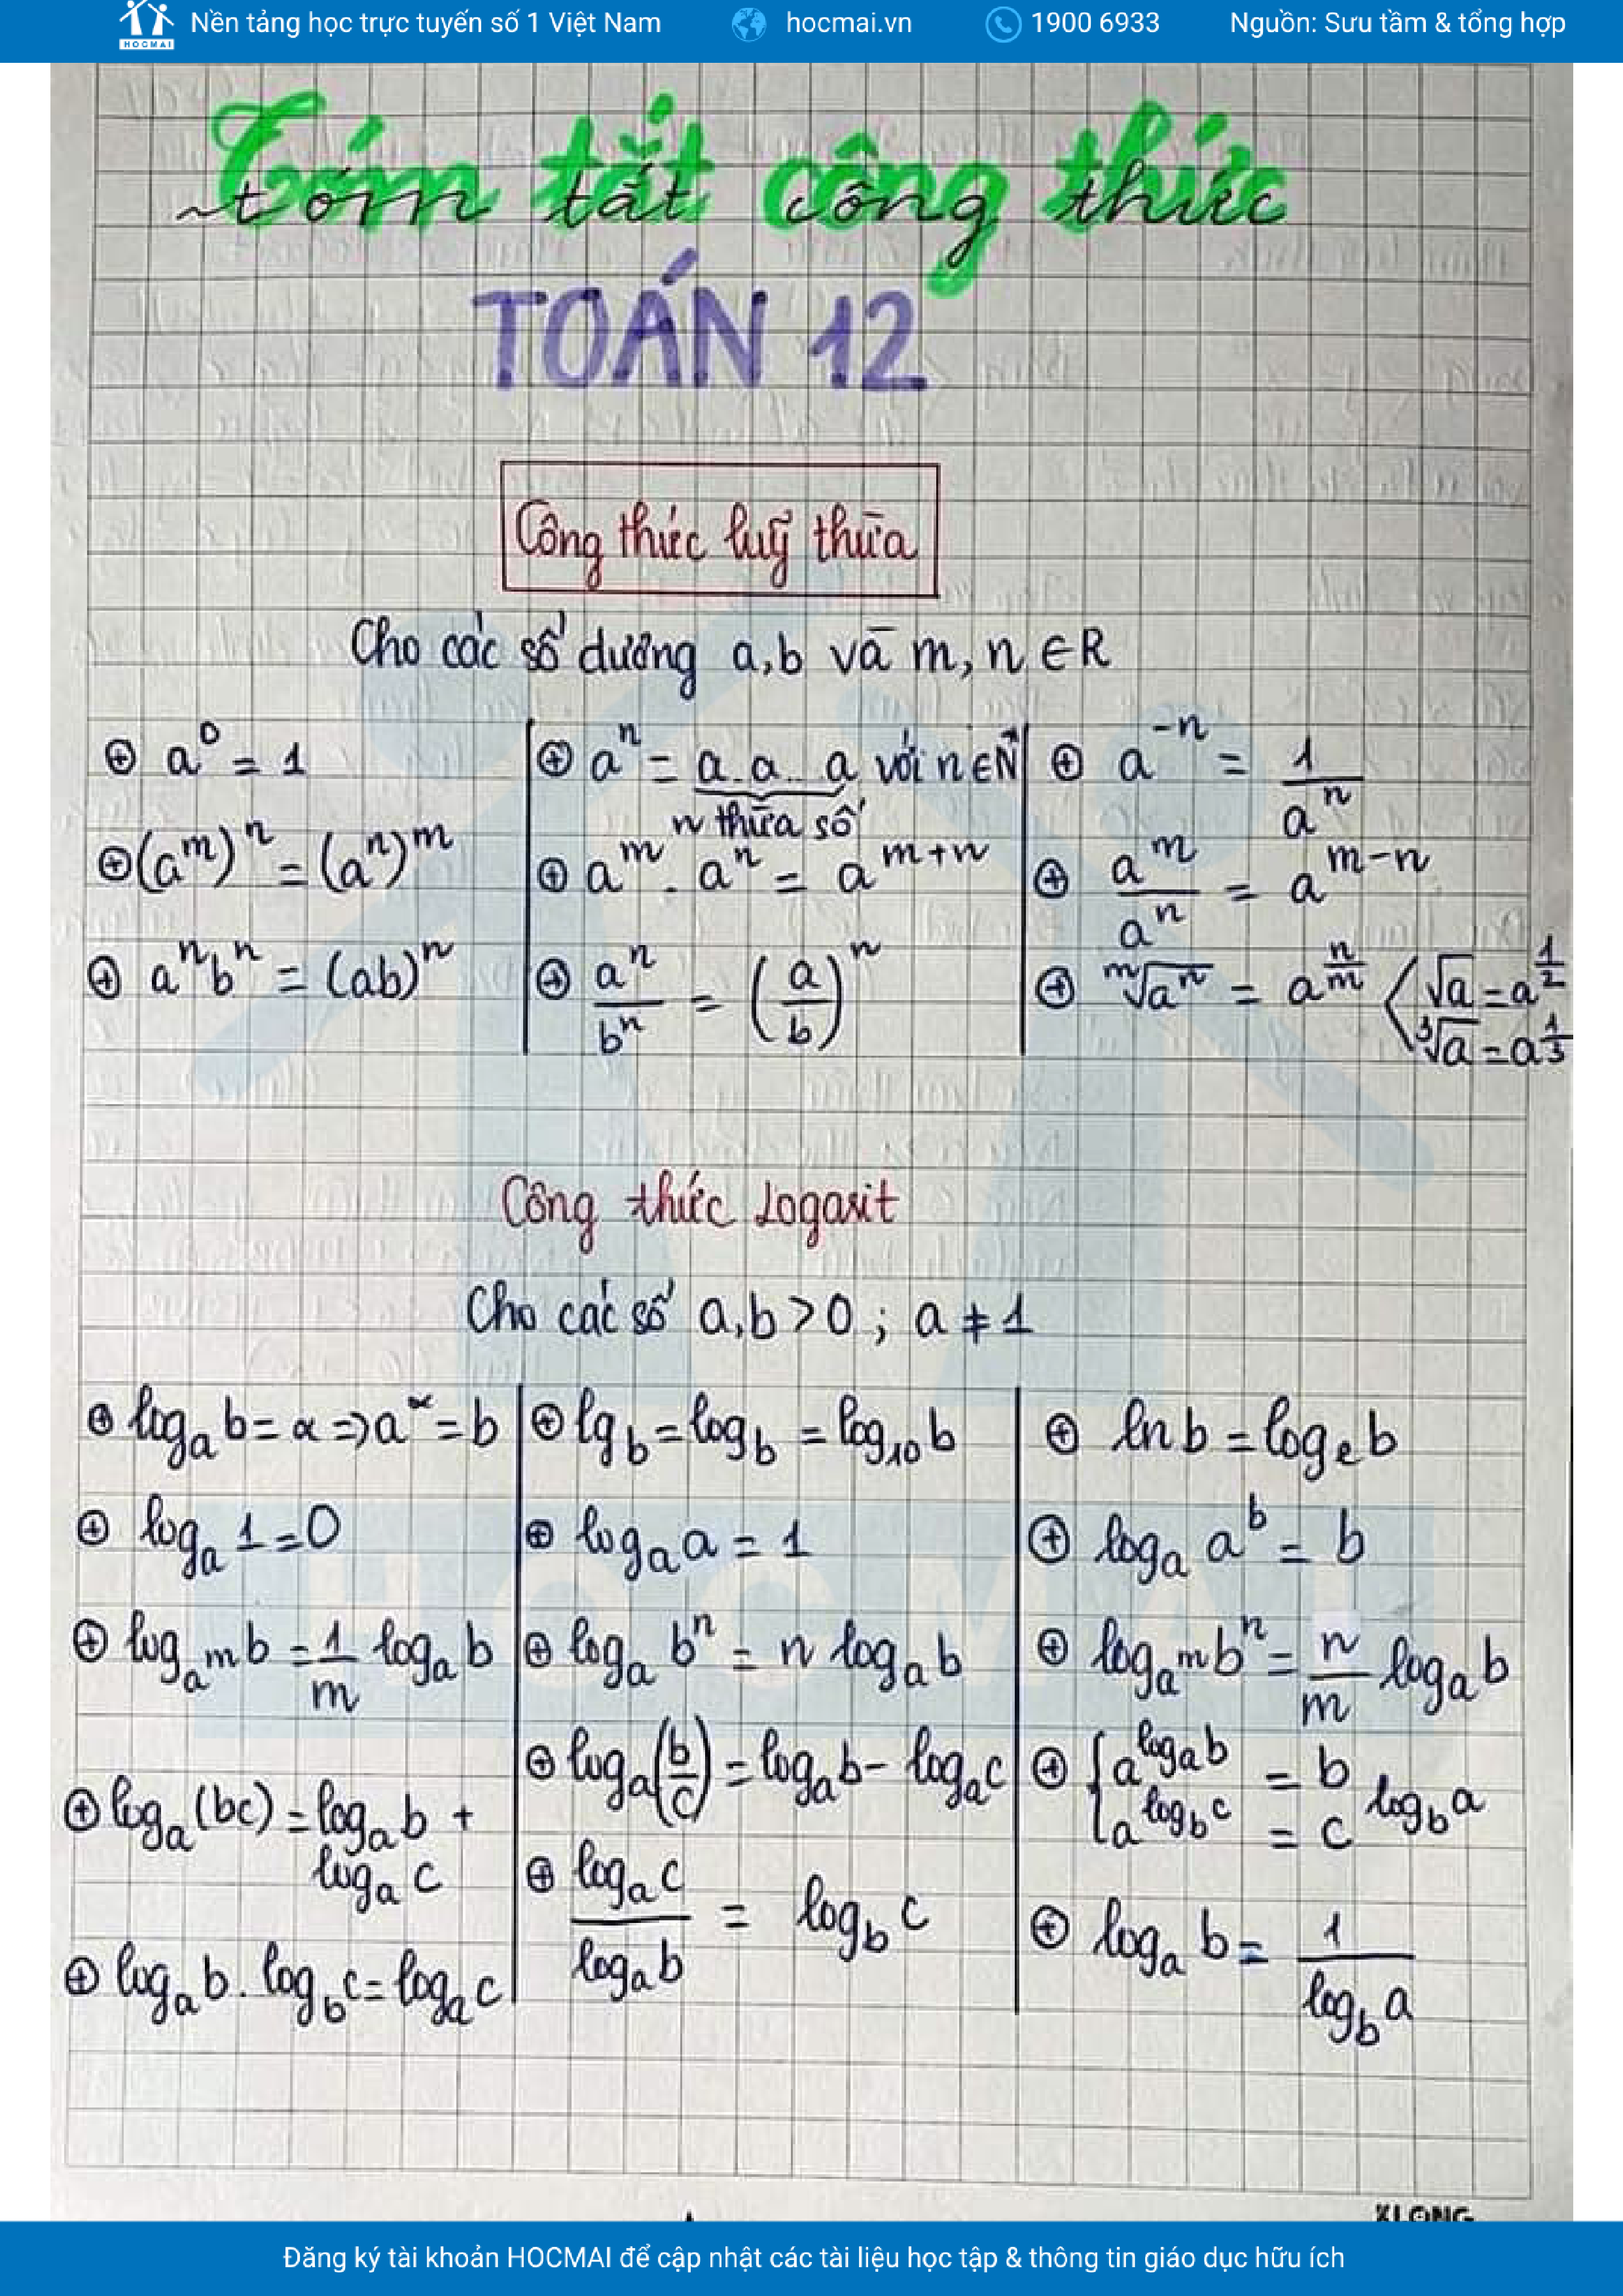 HOCMAI Nền tảng học trực tuyến số 1 Việt Nam hocmai.vn 1900 6933 Nguồn: Sưu tầm & tổng hợp
Tóm tắt công thức
TOÁN 12
Công thức luỹ thừa
Cho các số dương a, b và m, n ∈ R
⊕ a⁰ = 1
⊕ (a^m)^n = (a^n)^m
⊕ a^n b^n = (ab)^n
⊕ a^n = a.a...a với n ∈ N*
n thừa số
⊕ a^m . a^n = a^(m+n)
⊕ a^n / b^n = (a/b)^n
⊕ a^(-n) = 1 / a^n
⊕ a^m / a^n = a^(m-n)
⊕ ᵐ√(a^n) = a^(n/m) ⟨ √a = a^(1/2)
³√a = a^(1/3)
Công thức Logarit
Cho các số a, b > 0 ; a ≠ 1
⊕ log_a b = α => a^α = b
⊕ log_a 1 = 0
⊕ log_(a^m) b = 1/m log_a b
⊕ log_a (bc) = log_a b +
log_a c
⊕ log_a b . log_b c = log_a c
⊕ lg b = log b = log_10 b
⊕ log_a a = 1
⊕ log_a b^n = n log_a b
⊕ log_a (b/c) = log_a b - log_a c
⊕ log_a c / log_a b = log_b c
⊕ ln b = log_e b
⊕ log_a a^b = b
⊕ log_(a^m) b^n = n/m log_a b
⊕ { a^(log_a b) = b
a^(log_b c) = c^(log_b a)
⊕ log_a b = 1 / log_b a
HOCMAI
KLONG
Đăng ký tài khoản HOCMAI để cập nhật các tài liệu học tập & thông tin giáo dục hữu ích